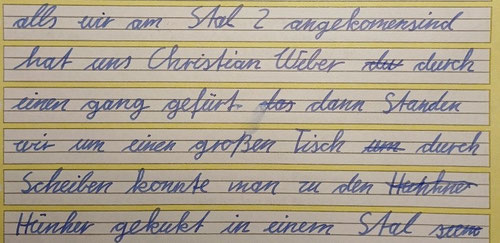 alls wir am Stal 2 angekomensind
hat uns Christian Weber du durch
einen gang gefürt das dann Standen
wir um einen großen Tisch um durch
Scheiben konnte man zu den Huhner
Hünher gekukt in einem Stal